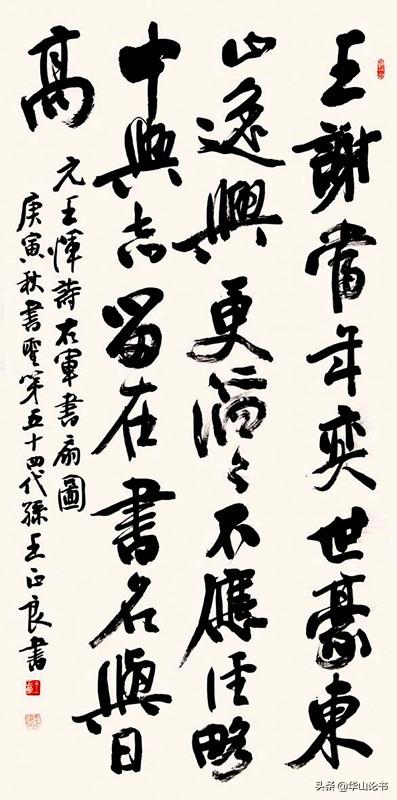 王謝當年奕世豪東
山逸興更滔々不應經略
中興志留在書名與日
高
元王惲詩右軍書扇圖
庚寅秋書聖第五十四代孫王正良書
头条 @华山论书